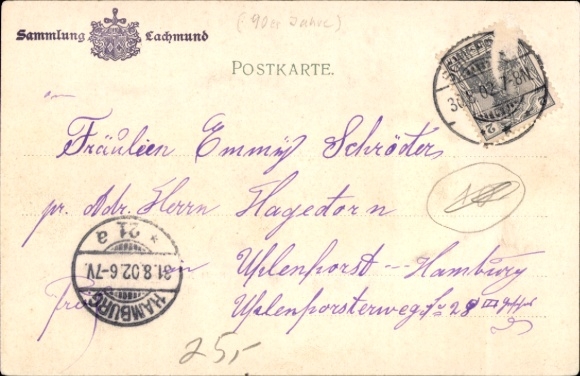 (90er Jahre)
Sammlung Lachmund
POSTKARTE.
30.8.02.7-8N.
Fräulein Emmy Schröder
pr. Adr. Herrn Hagedorn
in Uhlenhorst - Hamburg
Uhlenhorsterweg No 28 III
HAMBURG
31.8.02.6-7V.
* 21 a
25,-